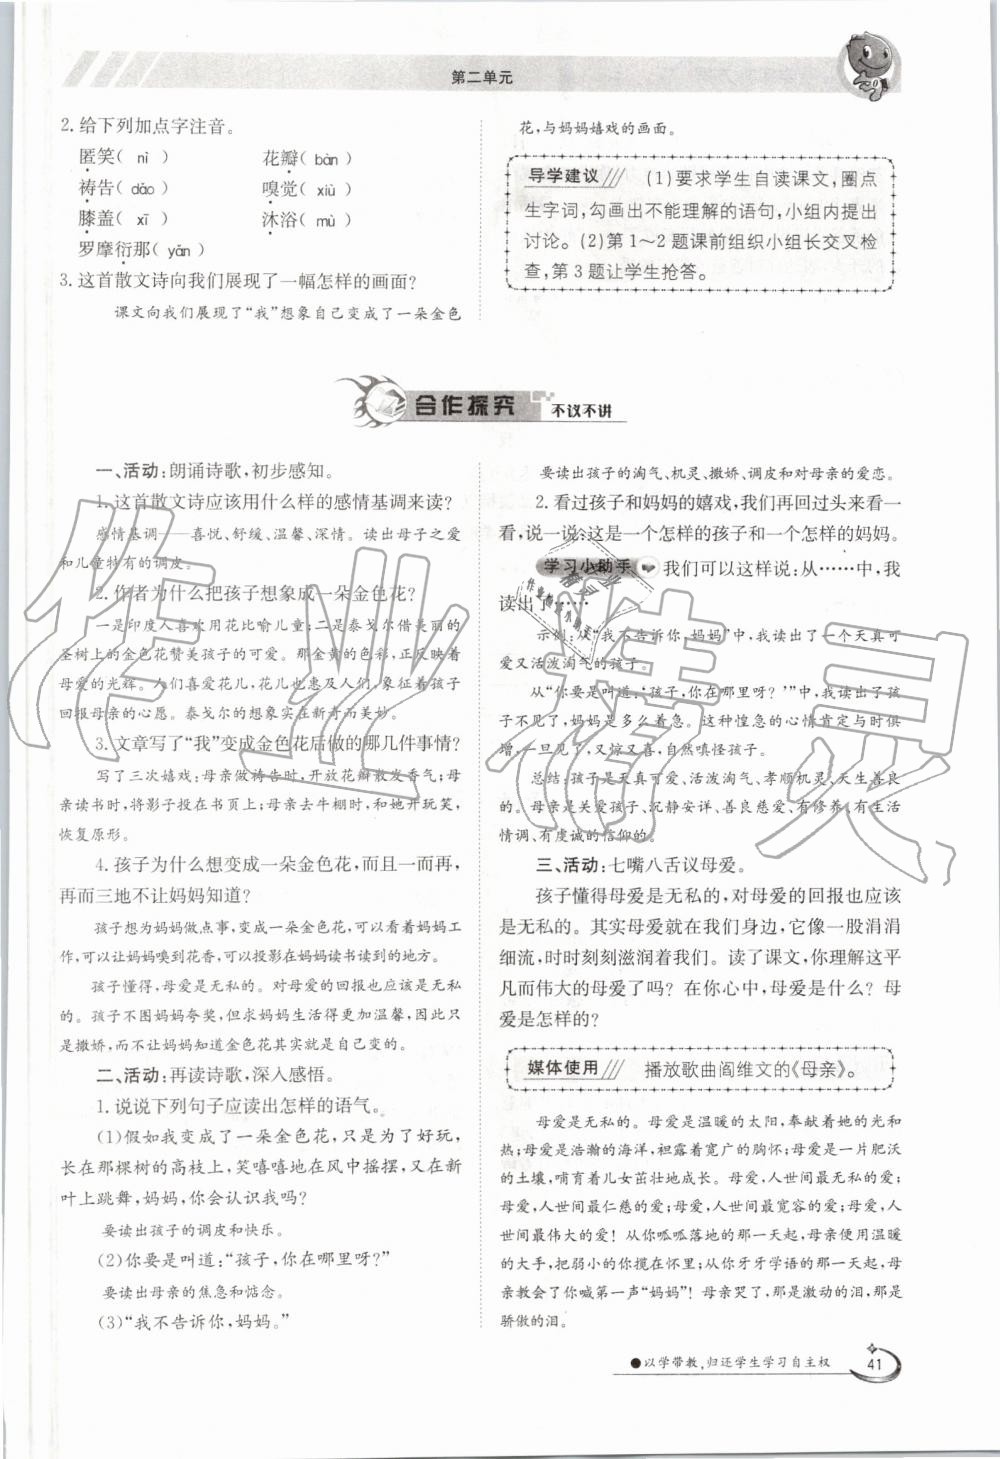 第二单元
2. 给下列加点字注音。
匿笑( nì )　花瓣( bàn )
祷告( dǎo )　嗅觉( xiù )
膝盖( xī )　沐浴( mù )
罗摩衍那( yǎn )
3. 这首散文诗向我们展现了一幅怎样的画面?
课文向我们展现了“我”想象自己变成了一朵金色
花,与妈妈嬉戏的画面。
导学建议 (1)要求学生自读课文,圈点
生字词,勾画出不能理解的语句,小组内提出
讨论。(2)第1～2题课前组织小组长交叉检
查,第3题让学生抢答。
合作探究 不议不讲
一、活动:朗诵诗歌,初步感知。
1. 这首散文诗应该用什么样的感情基调来读?
感情基调——喜悦、舒缓、温馨、深情。读出母子之爱
和儿童特有的调皮。
2. 作者为什么把孩子想象成一朵金色花?
一是印度人喜欢用花比喻儿童;二是泰戈尔借美丽的
圣树上的金色花赞美孩子的可爱。那金黄的色彩,正反映着
母爱的光辉。人们喜爱花儿,花儿也惠及人们,象征着孩子
回报母亲的心愿。泰戈尔的想象实在新奇而美妙。
3. 文章写了“我”变成金色花后做的哪几件事情?
写了三次嬉戏:母亲做祷告时,开放花瓣散发香气;母
亲读书时,将影子投在书页上;母亲去牛棚时,和她开玩笑,
恢复原形。
4. 孩子为什么想变成一朵金色花,而且一而再,
再而三地不让妈妈知道?
孩子想为妈妈做点事,变成一朵金色花,可以看着妈妈工
作,可以让妈妈嗅到花香,可以投影在妈妈读书读到的地方。
孩子懂得,母爱是无私的。对母爱的回报也应该是无私
的。孩子不图妈妈夸奖,但求妈妈生活得更加温馨,可能只
是撒娇,而不让妈妈知道金色花其实就是自己变的。
二、活动:再读诗歌,深入感悟。
1. 说说下列句子应读出怎样的语气。
(1)假如我变成了一朵金色花,只是为了好玩,
长在那棵树的高枝上,笑嘻嘻地在风中摇摆,又在新
叶上跳舞,妈妈,你会认识我吗?
要读出孩子的调皮和快乐。
(2)你要是叫道:“孩子,你在哪里呀?”
要读出母亲的焦急和惦念。
(3)“我不告诉你,妈妈。”
要读出孩子的淘气、机灵、撒娇、调皮和对母亲的爱恋。
2. 看过孩子和妈妈的嬉戏,我们再回过头来看一
看,说一说:这是一个怎样的孩子和一个怎样的妈妈。
学习小助手 我们可以这样说:从……中,我
读出了……
示例:从“我不告诉你,妈妈”中,我读出了一个天真可
爱又活泼淘气的孩子。
从“你要是叫道,‘孩子,你在哪里呀?’”中,我读出了孩
子不见了,妈妈是多么着急。这种惶急的心情肯定与时俱
增,一旦见了,又惊又喜,自然嗔怪孩子。
总结:孩子是天真可爱、活泼淘气、孝顺机灵、天生善良
的。母亲是关爱孩子、沉静安详、善良慈爱、有修养、有生活
情调、有虔诚的信仰的。
三、活动:七嘴八舌议母爱。
孩子懂得母爱是无私的,对母爱的回报也应该
是无私的。其实母爱就在我们身边,它像一股涓涓
细流,时时刻刻滋润着我们。读了课文,你理解这平
凡而伟大的母爱了吗?在你心中,母爱是什么?母
爱是怎样的?
媒体使用 播放歌曲阎维文的《母亲》。
母爱是无私的。母爱是温暖的太阳,奉献着她的光和
热;母爱是浩瀚的海洋,袒露着宽广的胸怀;母爱是一片肥沃
的土壤,哺育着儿女茁壮地成长。母爱,人世间最圣洁的爱;
母爱,人世间最仁慈的爱;母爱,人世间最宽容的爱;母爱,人
世间最伟大的爱!从你呱呱落地的那一天起,母亲便用温暖
的大手,把弱小的你揽在怀里;从你牙牙学语的那一天起,母
亲教会了你喊第一声“妈妈”!母亲哭了,那是激动的泪,那是
骄傲的泪。
●以学带教,归还学生学习自主权
41
作业精灵